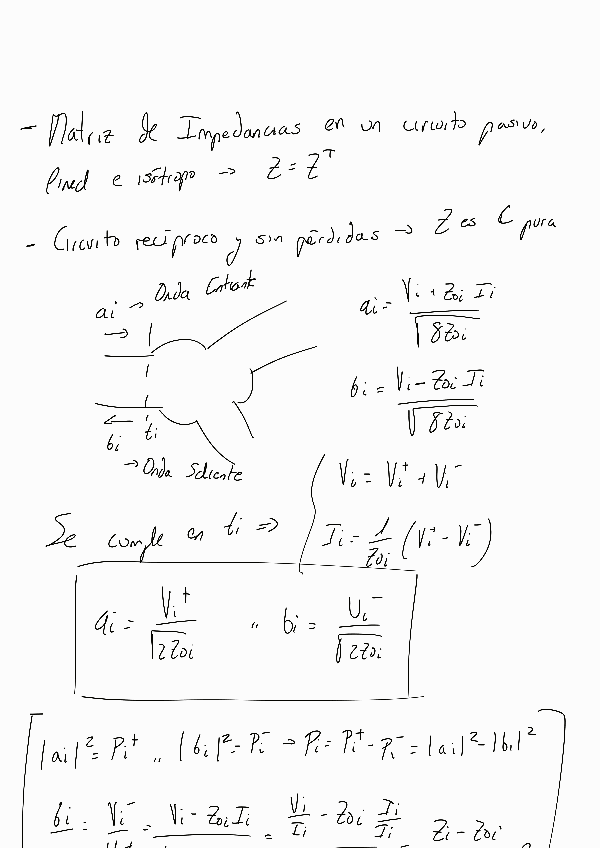 - Matriz de Impedancias en un circuito pasivo,
lineal e isótropo → Z = Z^T
- Circuito recíproco y sin pérdidas → Z es C pura
ai → Onda Entrante
→
ai = (Vi + Z0i Ii) / √(8Z0i)
bi = (Vi - Z0i Ii) / √(8Z0i)
← ti
bi
→ Onda Saliente
Vi = Vi^+ + Vi^-
Se cumple en ti ⇒ Ii = 1/Z0i (Vi^+ - Vi^-)
ai = Vi^+ / √(2Z0i) ,, bi = Vi^- / √(2Z0i)
|ai|^2 = Pi^+ ,, |bi|^2 = Pi^- → Pi = Pi^+ - Pi^- = |ai|^2 - |bi|^2
bi = Vi^- = Vi - Z0i Ii = Vi/Ii - Z0i Ii/Ii Zi - Z0i